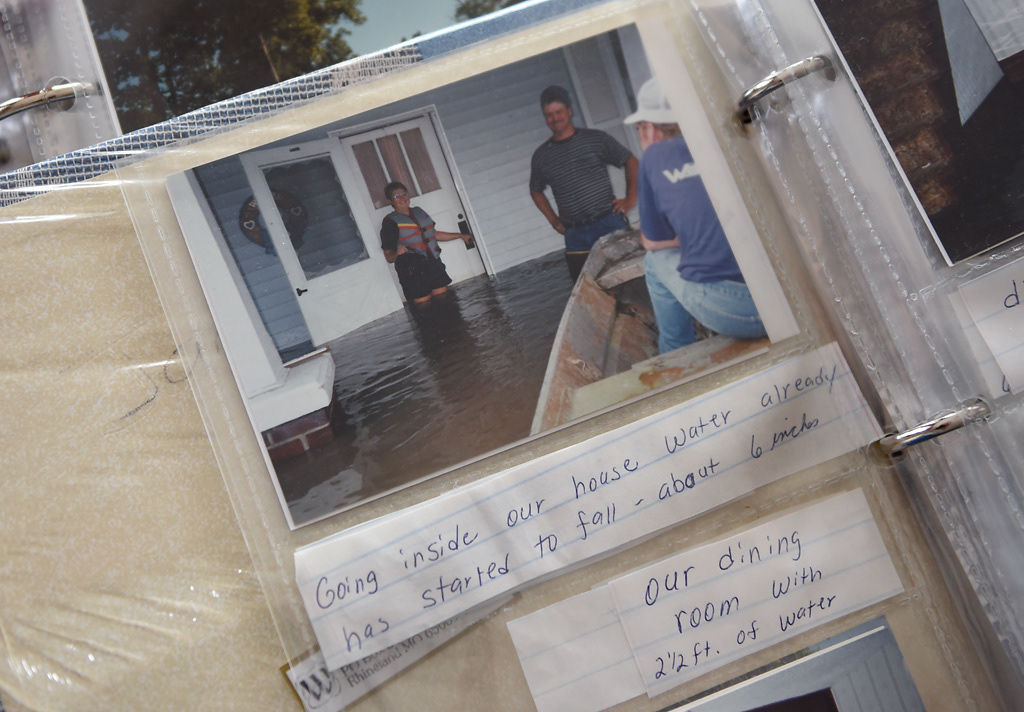 Going inside our house water already
has started to fall - about 6 inches
our dining
room with
2 1/2 ft. of water
Rhineland MO